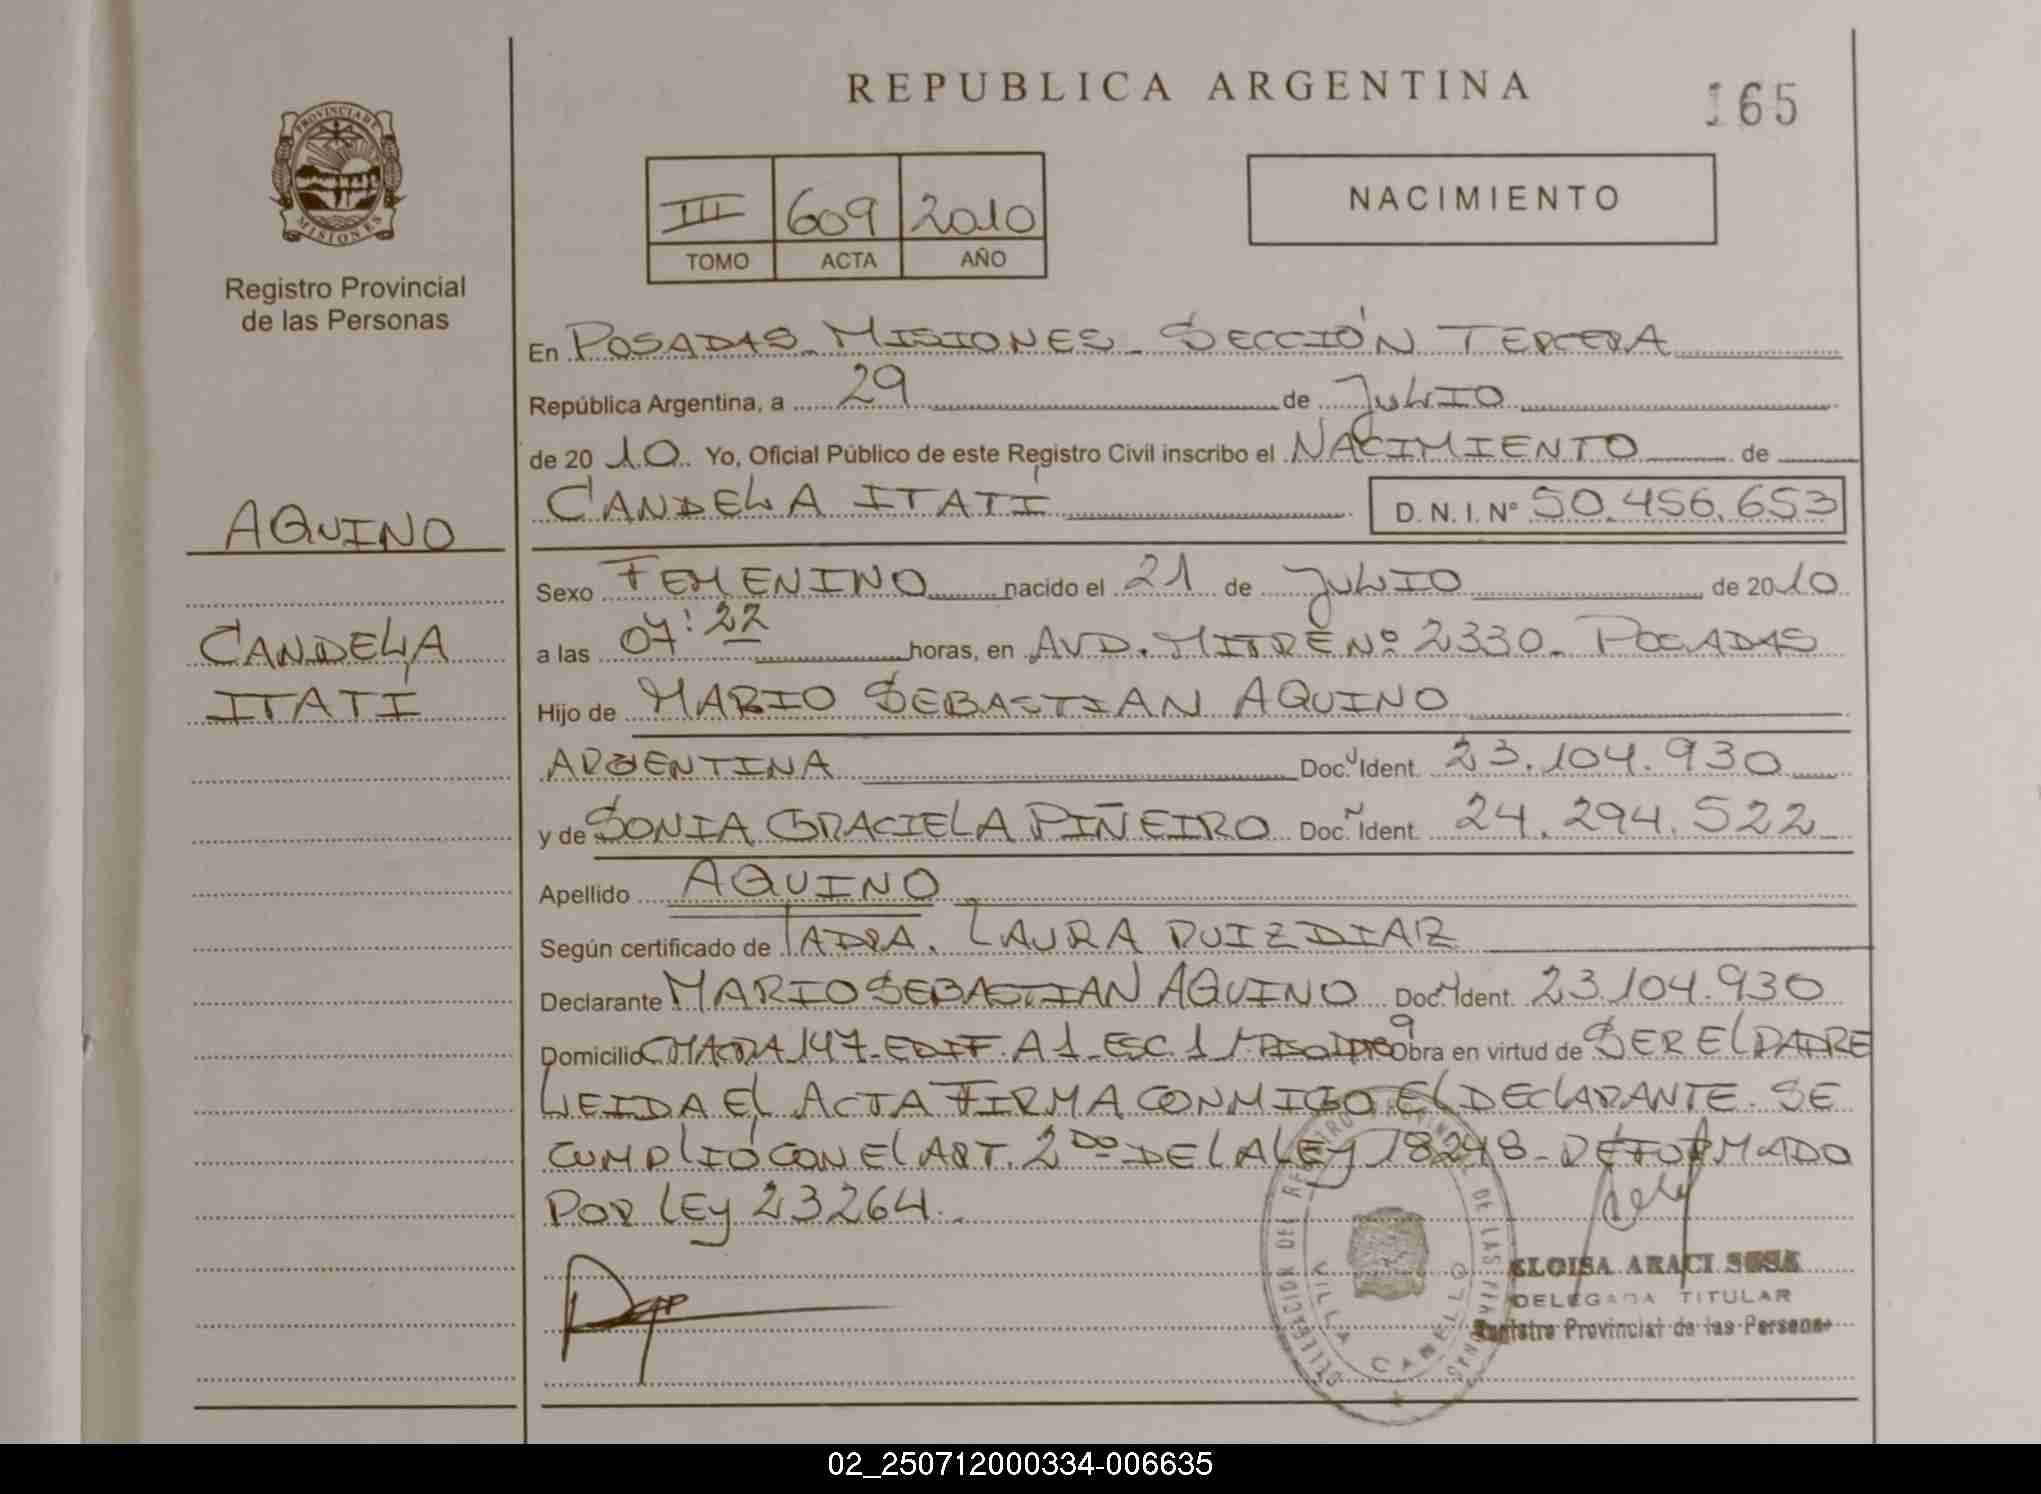 REPUBLICA ARGENTINA
165
PROVINCIA DE
MISIONES
Registro Provincial
de las Personas
III 609 2010
TOMO ACTA AÑO
NACIMIENTO
En POSADAS - MISIONES - SECCIÓN TERCERA
República Argentina, a 29 de JULIO
de 20 10. Yo, Oficial Público de este Registro Civil inscribo el NACIMIENTO de
CANDELA ITATÍ D.N.I. N° 50.456.653
AQUINO
CANDELA
ITATI
Sexo FEMENINO nacido el 21 de JULIO de 2010
a las 07:22 horas, en AVD. MITRE Nº 2330 - POSADAS
Hijo de MARIO SEBASTIAN AQUINO
ARGENTINA Doc. Ident. 23.104.930
y de SONIA GRACIELA PIÑEIRO Doc. Ident. 24.294.522
Apellido AQUINO
Según certificado de LAURA RUIZ DIAZ
Declarante MARIO SEBASTIAN AQUINO Doc. Ident. 23.104.930
Domicilio 147 - EDIF. A1 - ESC. 1 Obra en virtud de SER EL PADRE
LEIDA EL ACTA FIRMA CONMIGO EL DECLARANTE. SE
CUMPLIÓ CON EL ART. 2DO DE LA LEY 18248 - REFORMADO
POR LEY 23264.
DELEGACION DEL REGISTRO PROVINCIAL DE LAS PERSONAS
VILLA CABELLO
ELOISA ARACI SOSA
DELEGADA TITULAR
Registro Provincial de las Personas
02_250712000334-006635